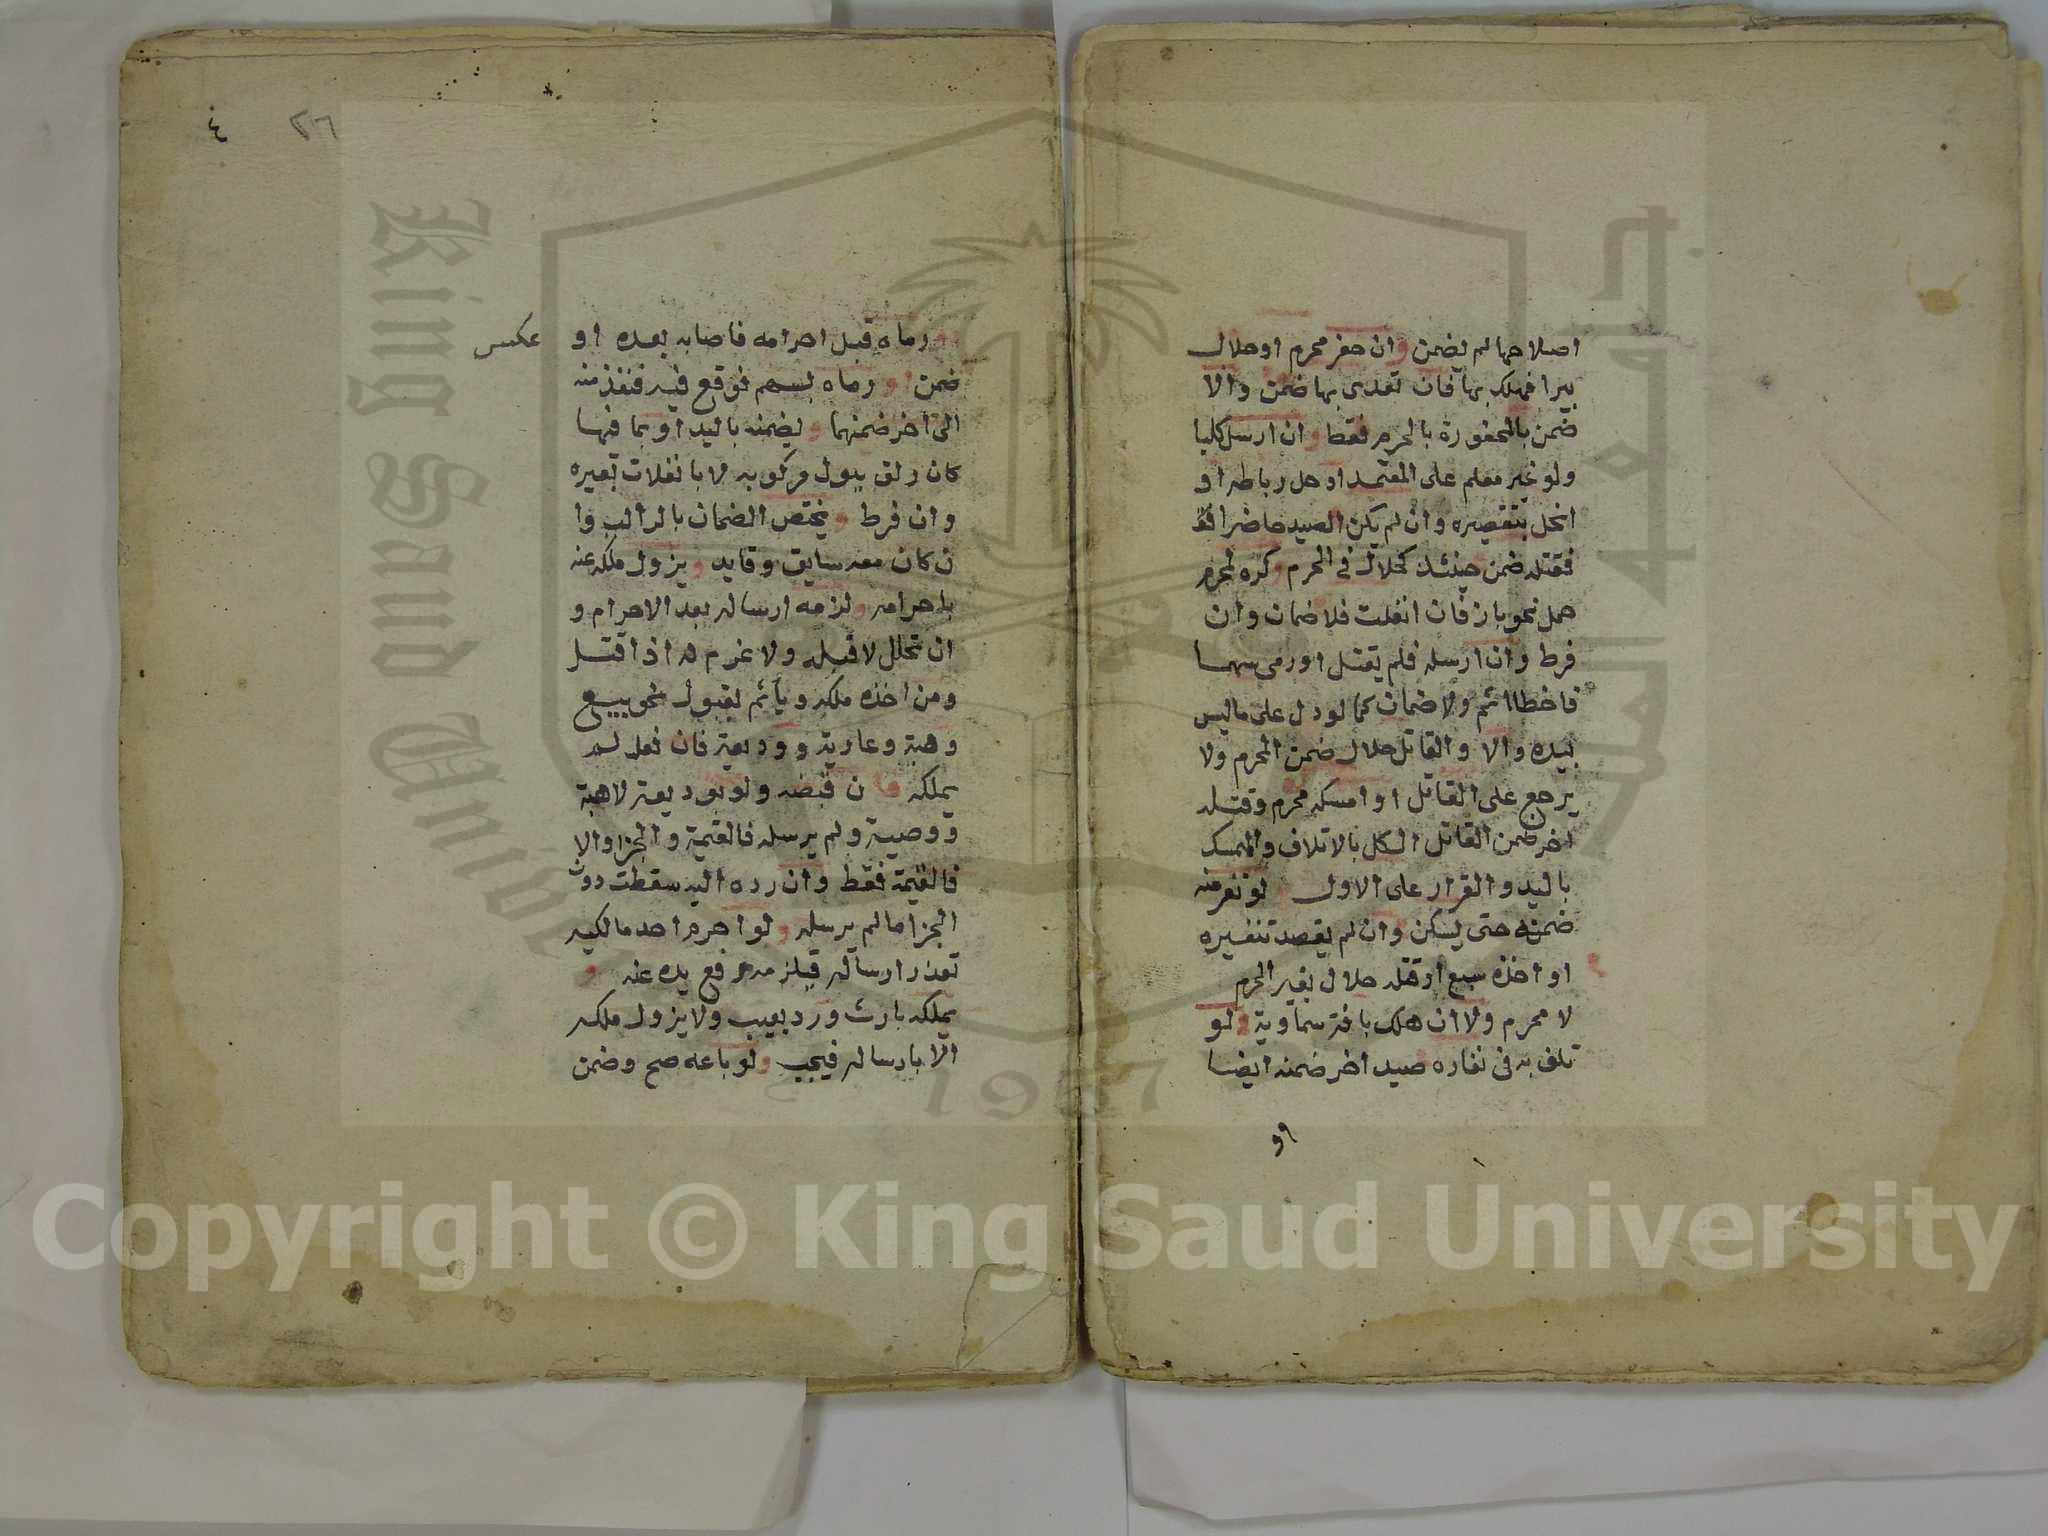 اصلاحها لم يضمن وان حفر محرم او حلال
بيرا فهلك بها فان تعدى بها ضمن والا
ضمن بالمحفورة بالحرم فقط وان ارسل كلبا
ولو غير معلم على المعتمد او حل رباطه او
انحل بتقصيره وان لم يكن الصيد حاضرا
فقتله ضمن حينئذ كحلال في الحرم وكره لمحرم
حمل نحو باز فان انفلت فلا ضمان وان
فرط وان ارسله فلم يقتل او رمى سهما
فاخطا اثم ولا ضمان كما لو دل على ما ليس
بيده والا والقاتل حلال ضمن المحرم ولا
يرجع على القاتل او امسكه محرم وقتله
اخر ضمن القاتل الكل بالاتلاف والممسك
باليد والقرار على الاول لو نفر منه
ضمنه حتى يسكن وان لم يقصد تنفيره
او اخذه سبع او قتله حلال بغير الحرم
لا محرم ولا ان هلك بافة سماوية ولو
تلف به في نفاره صيد اخر ضمنه ايضا
او
٤ ٢٦
رماه قبل احرامه فاصابه بعده او عكس
ضمن او رماه بسهم فوقع فيه فنفذ منه
الى اخر ضمنهما ويضمنه باليد او بما فيها
كان زلق ببول مركوبه لا بانفلات بعيره
وان فرط ويختص الضمان بالراكب وا
ن كان معه سايق وقايد ويزول ملكه عنه
باحرامه ولزمه ارساله بعد الاحرام و
ان تحلل لا قبله ولا غرم له اذا قتل
ومن اخذه ملكه وياثم بقبول نحو بيع
وهبة وعارية ووديعة فان فعل لم
يملكه فان قبضه ولو بوديعة لا هبة
ووصية ولم يرسله فالقيمة والجزا والا
فالقيمة فقط وان رده اليه سقطت دون
الجزا ما لم يرسله ولو احرم احد مالكيه
تعذر ارساله فيلزمه رفع يده عنه و
يملكه بارث ورد بعيب ولا يزول ملكه
الا بارساله فيجب ولو باعه صح وضمن
Copyright © King Saud University
King Saud University
جامعة الملك سعود
1957